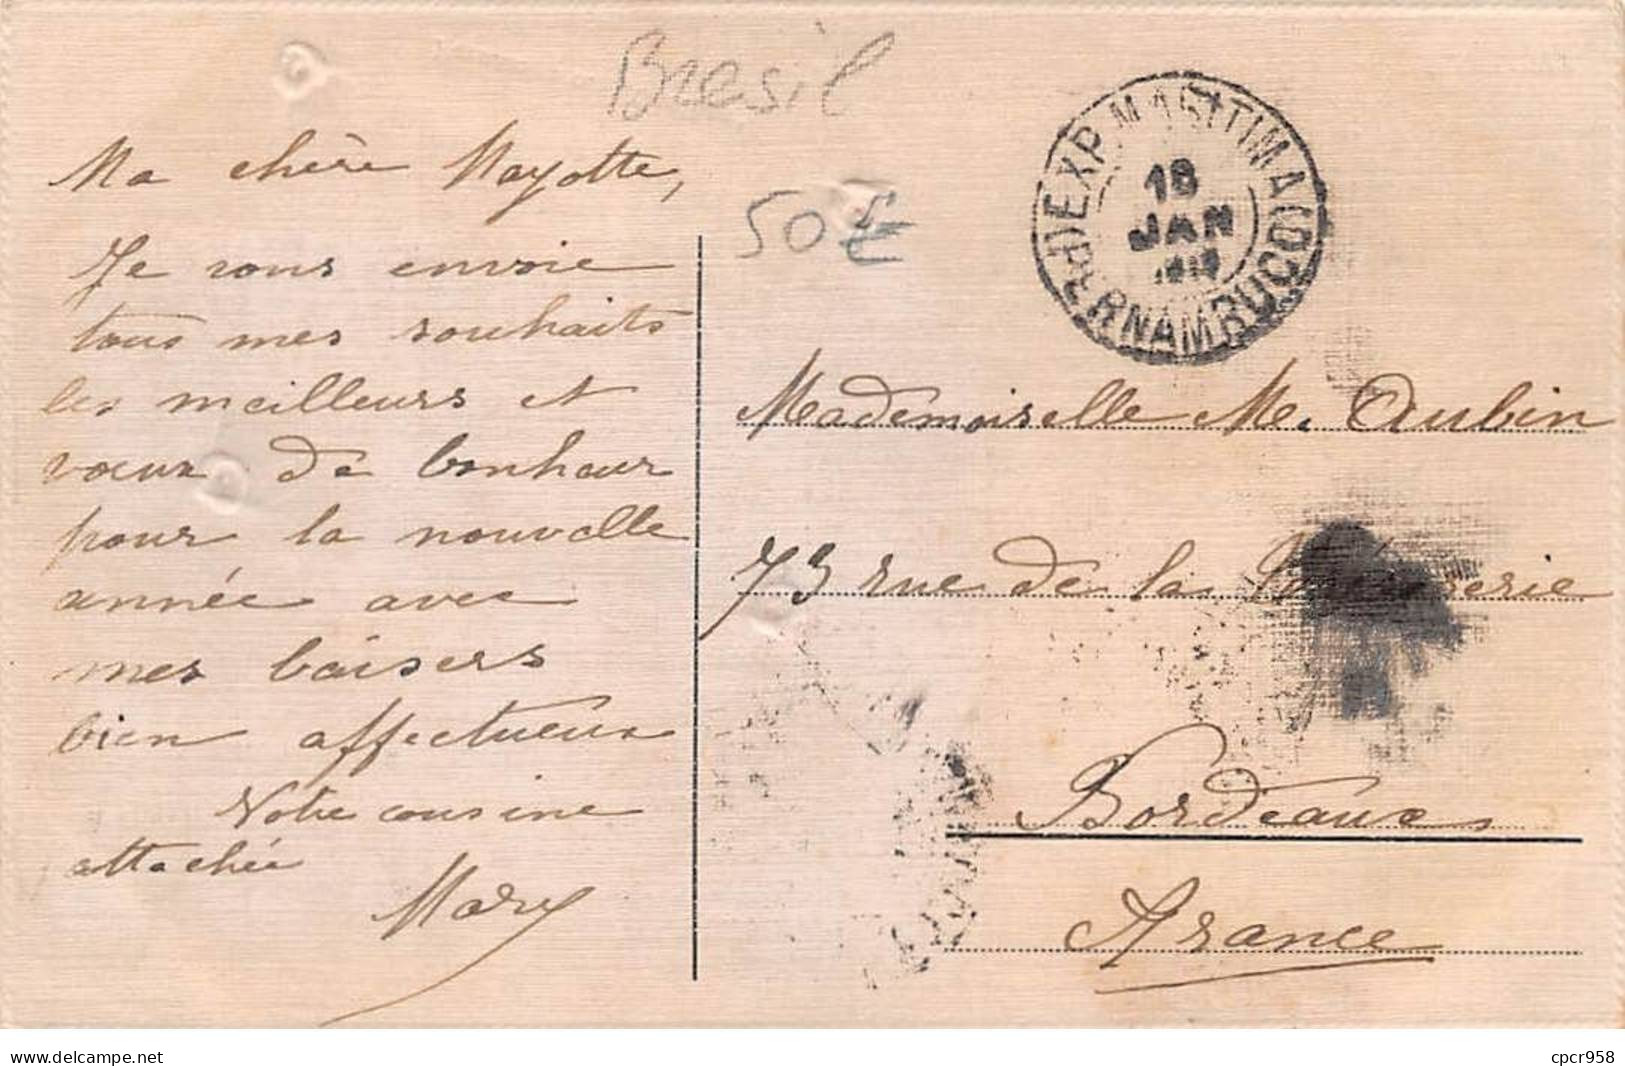 Bresil
50€
EXP. MARITIMA (DOC)
18
JAN
PERNAMBUCO
Ma chère Mayotte,
Je vous envoie
tous mes souhaits
les meilleurs et
vœux de bonheur
pour la nouvelle
année avec
mes baisers
bien affectueux
Votre cousine
attachée
Mary
Mademoiselle M. Aubin
73 rue de la
Bordeaux
France
delcampe.net
cpcr958